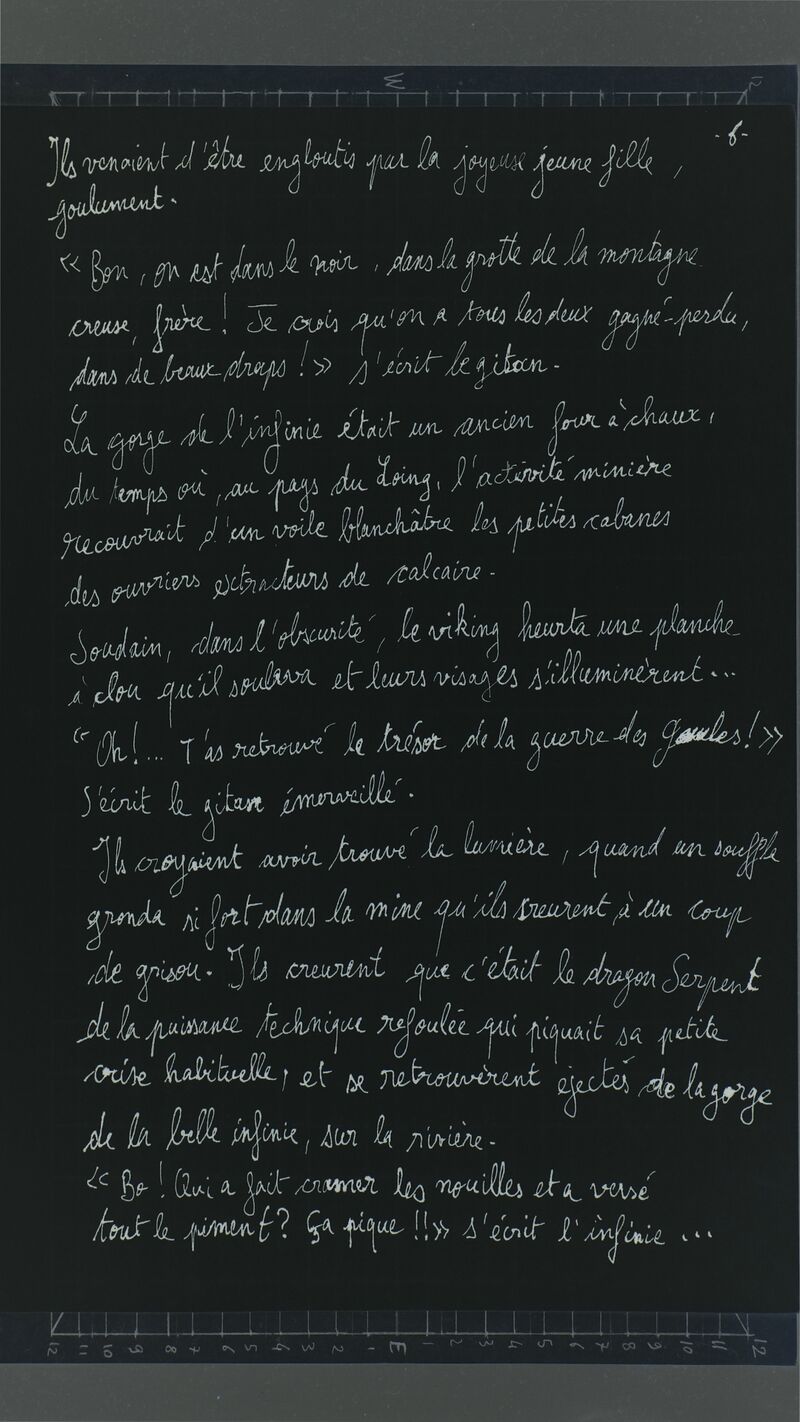 -6-
Ils venaient d'être engloutis par la joyeuse jeune fille,
goulument.
« Bon, on est dans le noir, dans la grotte de la montagne
creuse, frère ! Je crois qu'on a tous les deux gagné-perdu,
dans de beaux draps ! » s'écrit le gitan.
La gorge de l'infinie était un ancien four à chaux,
du temps où, au pays du Loing, l'activité minière
recouvrait d'un voile blanchâtre les petites cabanes
des ouvriers extracteurs de calcaire.
Soudain, dans l'obscurité, le viking heurta une planche
à clou qu'il souleva et leurs visages s'illuminèrent...
" Oh!... T'as retrouvé le trésor de la guerre des Gaules! »
S'écrit le gitan émerveillé.
Ils croyaient avoir trouvé la lumière, quand un souffle
gronda si fort dans la mine qu'ils creurent à un coup
de grisou. Ils creurent que c'était le dragon Serpent
de la puissance technique refoulée qui piquait sa petite
crise habituelle, et se retrouvèrent ejectés de la gorge
de la belle infinie, sur la rivière.
« Bo ! Qui a fait cramer les nouilles et a versé
tout le piment ? Ça pique !! » s'écrit l'infinie ...
W
12
12 11 10 9 8 7 6 5 4 3 2 1 E 1 2 3 4 5 6 7 8 9 10 11 12